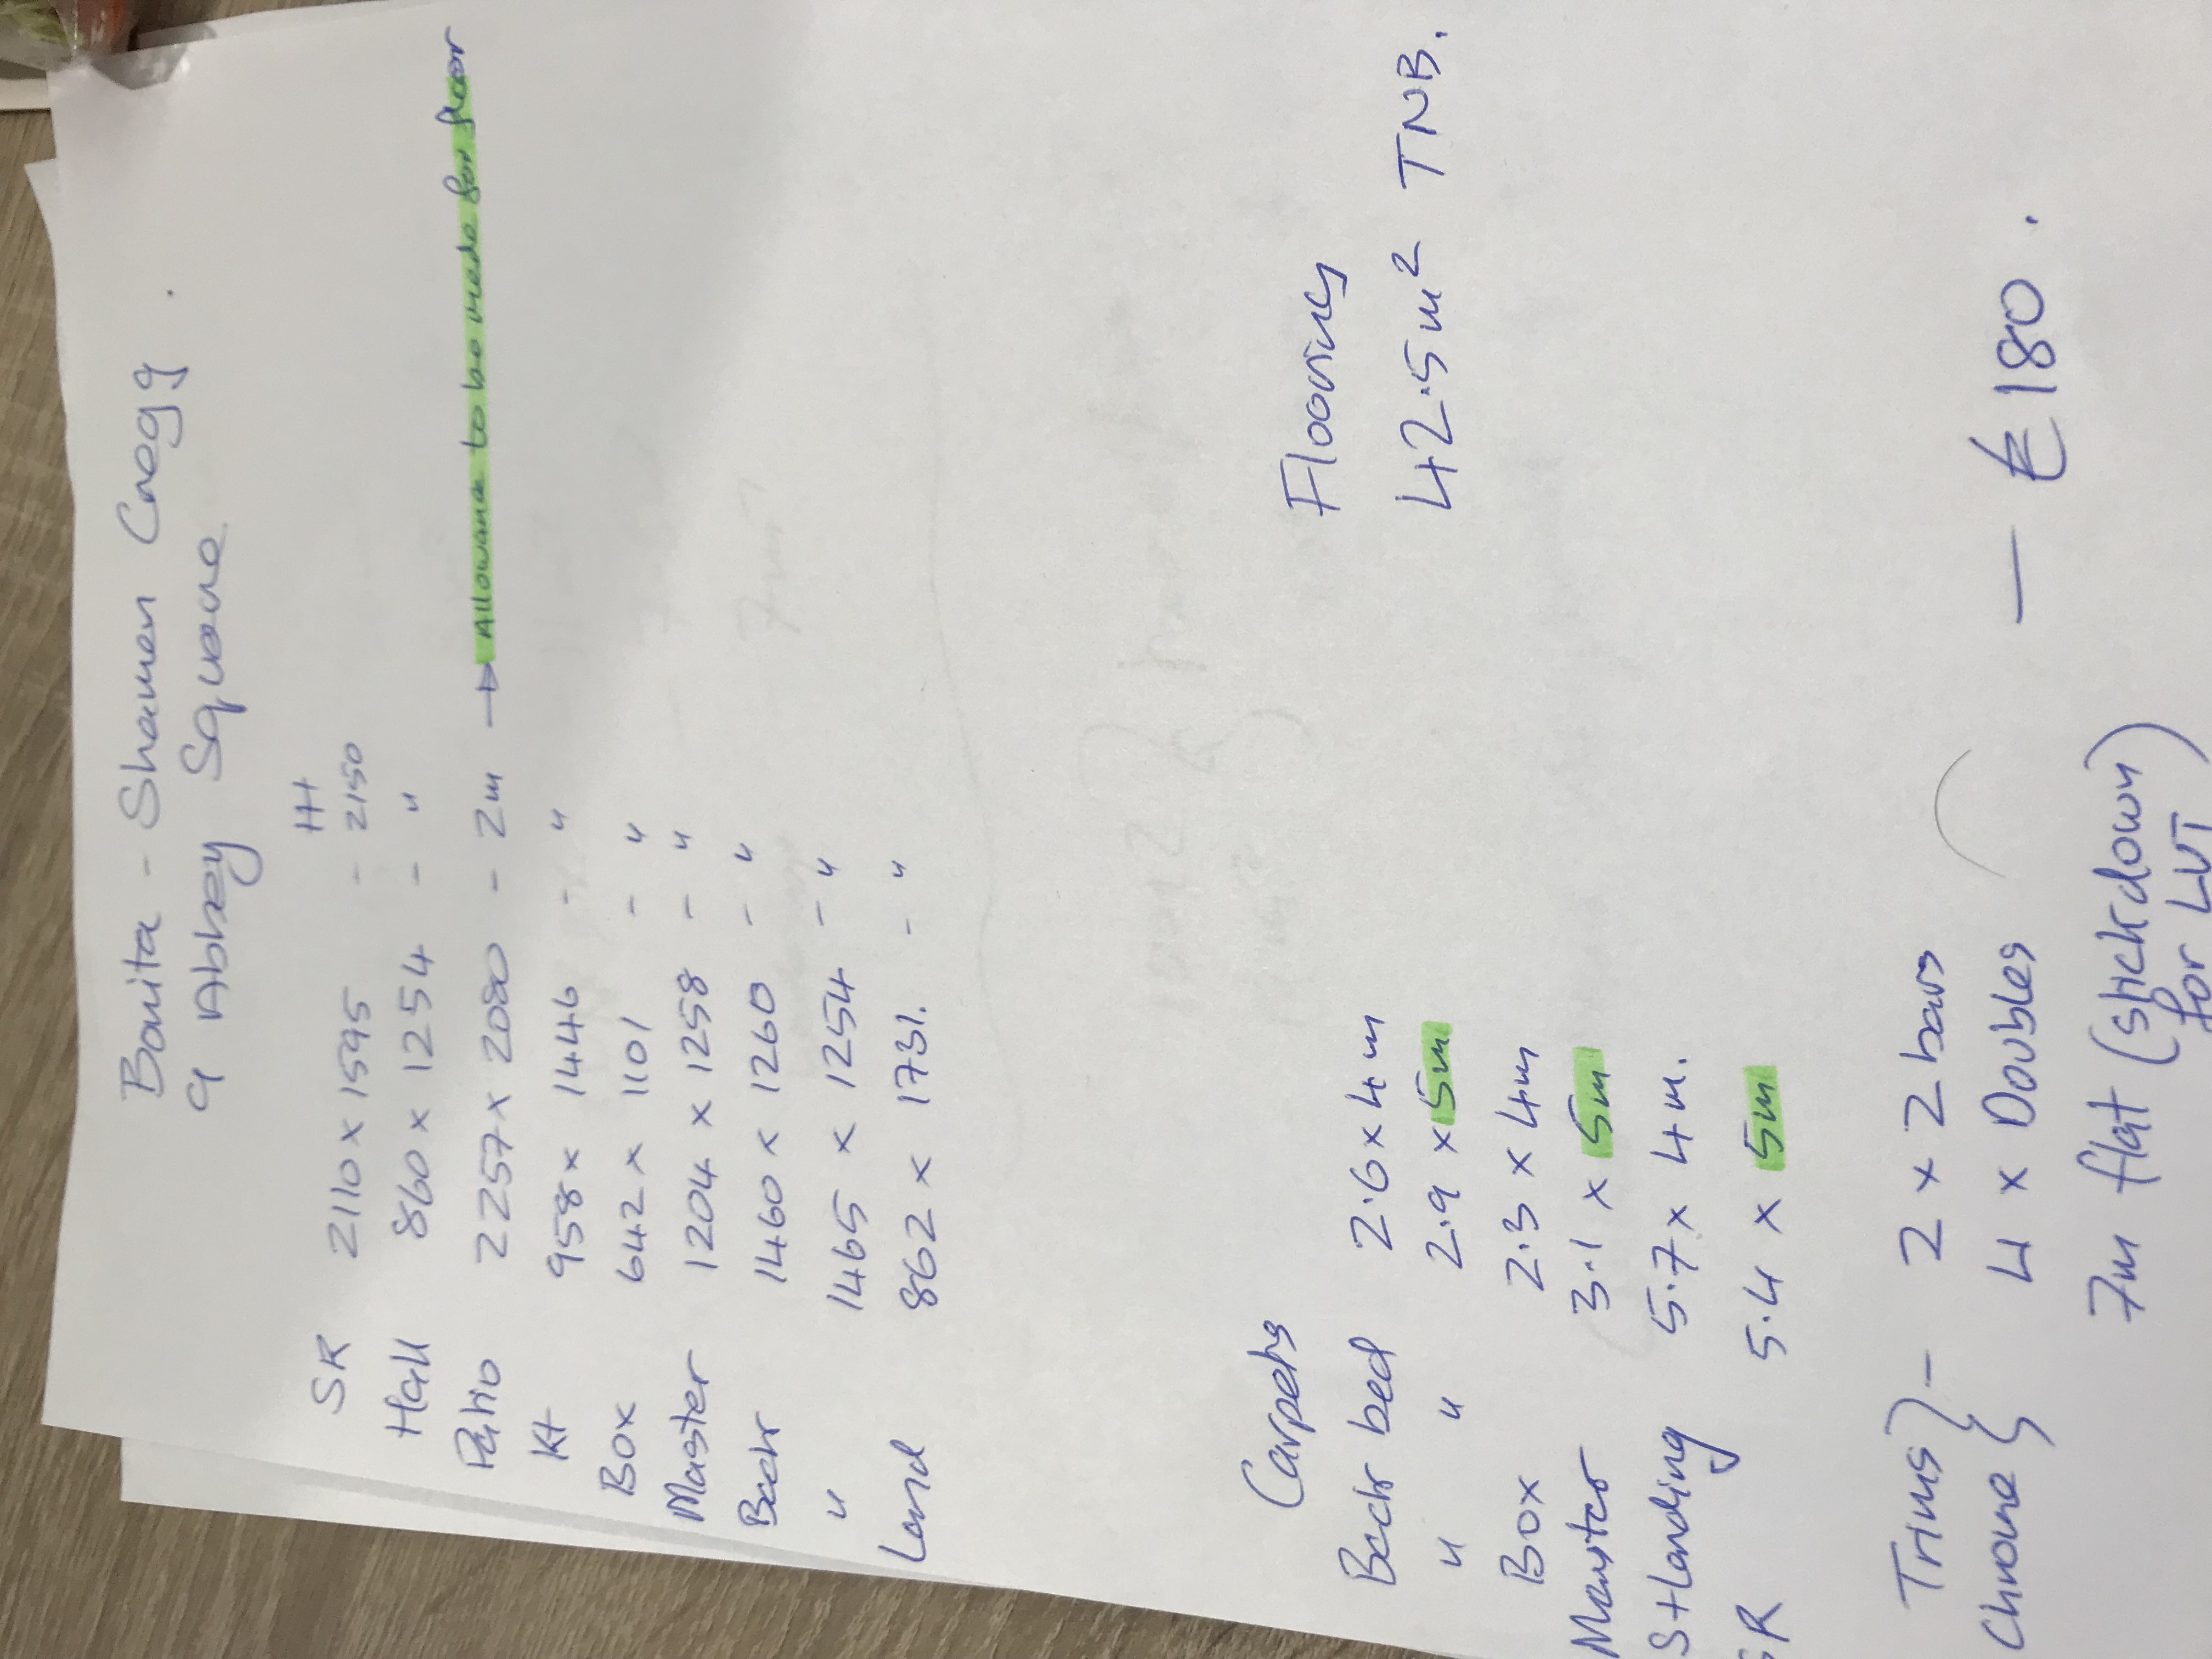 Bonita - Sharmen Cragg.
9 Abbey Square
HH
SR 2110 x 1595 - 2150
Hall 860 x 1254 - "
Patio 2257 x 2080 - 2m → Allowance to be made for floor
Kt 958 x 1446 - "
Box 642 x 1101 - "
Master 1204 x 1258 - "
Back 1460 x 1260 - "
" 1465 x 1254 - "
Land 862 x 1731. - "
Carpets
Flooring
Back bed 2.6 x 4m
42.5m² TNB.
" " 2.9 x 5m
Box 2.3 x 4m
Master 3.1 x 5m
S+landing 5.7 x 4m.
SR 5.4 x 5m
Trims } - 2 x 2 bars
Chrome } 4 x Doubles — £180.
7m flat (stickdown)
for LVT